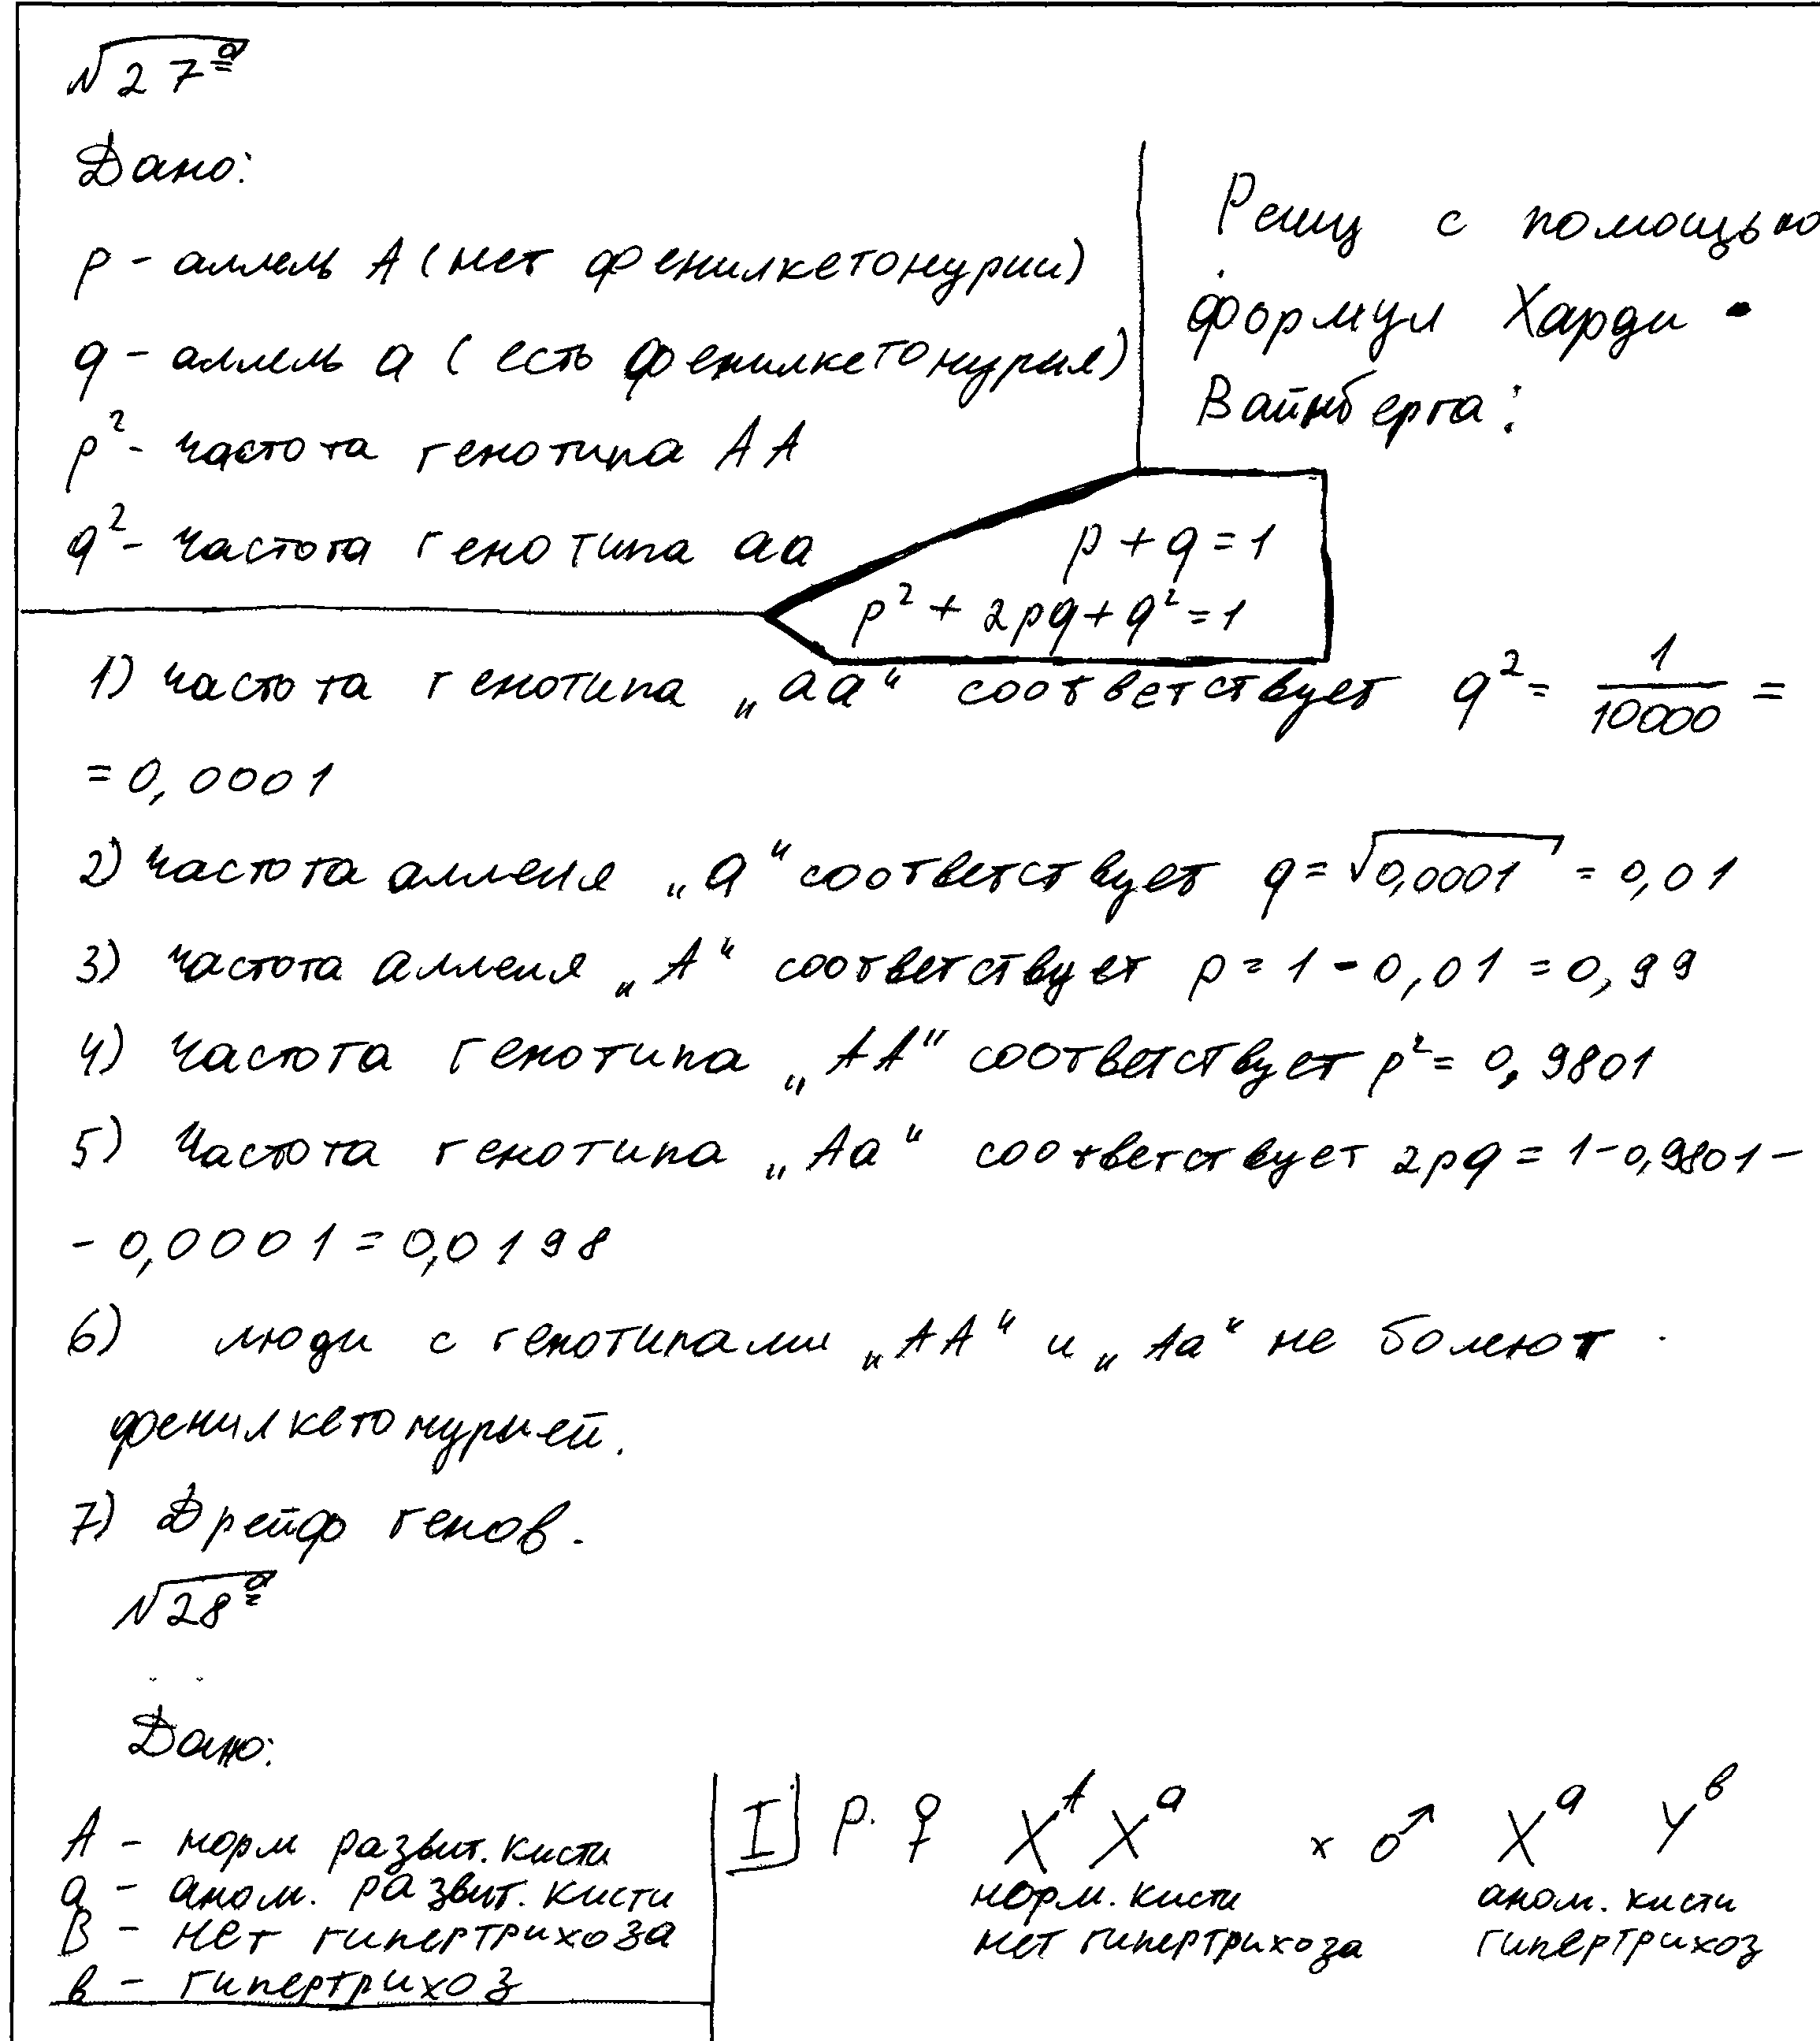 √27а
Дано:
p - аллель A (нет фенилкетонурии)
q - аллель a (есть фенилкетонурия)
p² - частота генотипа AA
q² - частота генотипа aa
Решу с помощью
формул Харди -
Вайнберга:
p + q = 1
p² + 2pq + q² = 1
1) частота генотипа „aa“ соответствует q² = 1/10000 =
= 0,0001
2) частота аллеля „a“ соответствует q = √0,0001 = 0,01
3) частота аллеля „A“ соответствует p = 1 - 0,01 = 0,99
4) частота генотипа „AA“ соответствует p² = 0,9801
5) Частота генотипа „Aa“ соответствует 2pq = 1 - 0,9801 -
- 0,0001 = 0,0198
6) люди с генотипами „AA“ и „Aa“ не болеют
фенилкетонурией.
7) Дрейф генов.
√28а
Дано:
A - норм развит. кисти
a - аном. развит. кисти
B - нет гипертрихоза
в - гипертрихоз
I] P. ♀ Xᴬ Xᵃ x ♂ Xᵃ Yᵇ
норм. кисти аном. кисти
нет гипертрихоза гипертрихоз